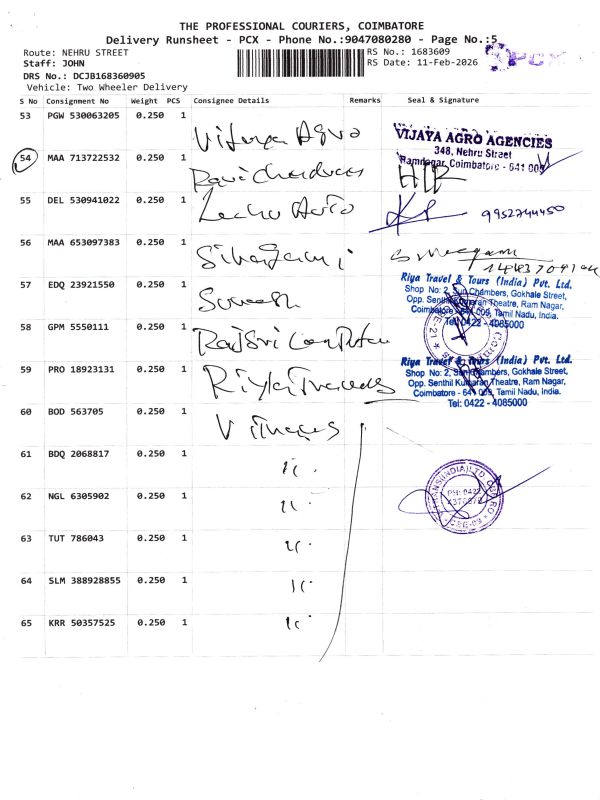 THE PROFESSIONAL COURIERS, COIMBATORE
Delivery Runsheet - PCX - Phone No.:9047080280 - Page No.:5
Route: NEHRU STREET
RS No.: 1683609
PCX
Staff: JOHN
RS Date: 11-Feb-2026
DRS No.: DCJB168360905
Vehicle: Two Wheeler Delivery
S No Consignment No Weight PCS Consignee Details Remarks Seal & Signature
53 PGW 530063205 0.250 1 Vijaya Agro
VIJAYA AGRO AGENCIES
348, Nehru Street
Ramnagar, Coimbatore - 641 009
54 MAA 713722532 0.250 1
55 DEL 530941022 0.250 1 Auto 9952744450
56 MAA 653097383 0.250 1
57 EDQ 23921550 0.250 1 Suresh
Riya Travel & Tours (India) Pvt. Ltd.
Shop No: 2, Sun Chambers, Gokhale Street,
Opp. Senthil Kumaran Theatre, Ram Nagar,
Coimbatore - 641 009, Tamil Nadu, India.
Tel: 0422 - 4085000
58 GPM 5550111 0.250 1 Rajsri
59 PRO 18923131 0.250 1 Riya Travels
Riya Travel & Tours (India) Pvt. Ltd.
Shop No: 2, Sun Chambers, Gokhale Street,
Opp. Senthil Kumaran Theatre, Ram Nagar,
Coimbatore - 641 009, Tamil Nadu, India.
Tel: 0422 - 4085000
60 BOD 563705 0.250 1
61 BDQ 2068817 0.250 1 "
62 NGL 6305902 0.250 1 "
63 TUT 786043 0.250 1 "
64 SLM 388928855 0.250 1 "
65 KRR 50357525 0.250 1 "